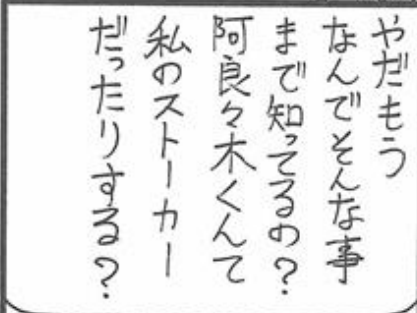 やだもう
なんでそんな事
まで知ってるの？
阿良々木くんて
私のストーカー
だったりする？